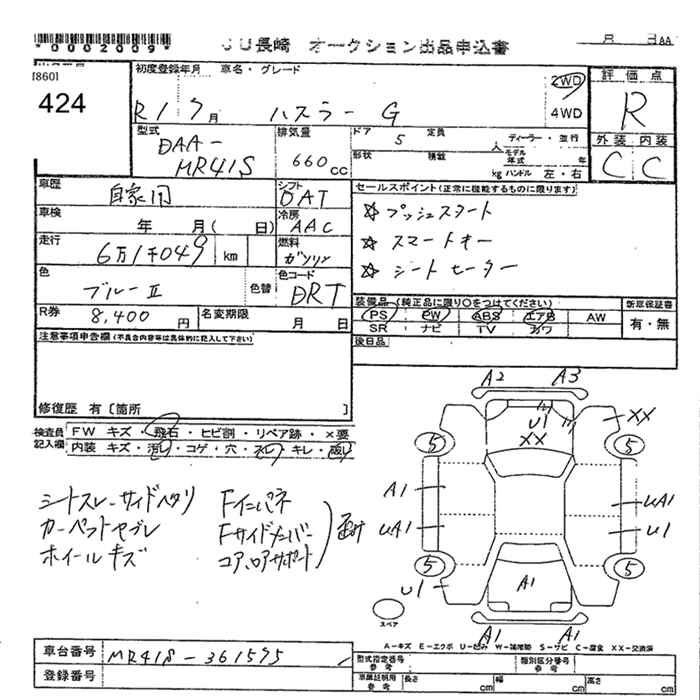 *0002009*
JU長崎 オークション出品申込書
月 日 AA
[860]
424
初度登録年月 車名・グレード
R1 7月 ハスラー G
2WD
4WD
評価点
R
外装 内装
C C
型式
DAA-
MR41S
排気量
660cc
ドア 5 定員 人
ディーラー・並行
形状 積載 kg
モデル年式 年
ハンドル 左・右
車歴 自家用
シフト DAT
車検 年 月( 日)
冷房 AAC
走行 6万1千049 km
燃料 ガソリン
色 ブルーⅡ
色替
色コード DRT
R券 8,400円
名変期限 月 日
セールスポイント(正常に機能するものに限ります)
☆ プッシュスタート
☆ スマートキー
☆ シートヒーター
装備品(純正品に限り○をつけてください)
PS PW ABS エアB AW
SR ナビ TV カワ
新車保証書
有・無
後日品
注意事項申告欄(不具合内容等は具体的に記入して下さい)
修復歴 有[箇所 ]
検査員記入欄
FW キズ・飛石・ヒビ割・リペア跡・×要
内装 キズ・汚レ・コゲ・穴・スレ・キレ・破レ
シートスレーサイドヘタリ
カーペットヤブレ
ホイールキズ
Fインパネ
Fサイドメンバー
コアロアサポート
A2 A3
U1
XX
XX
5 5
A1
UA1
UA1
U1
5 5
U1
A1
A1 A1
スペア
A-キズ E-エクボ U-凹み W-補修跡 S-サビ C-腐食 XX-交換済
車台番号 MR41S-361595
登録番号
型式指定番号 参考
類別区分番号 参考
車庫証明用 参考
長さ cm
幅 cm
高さ cm